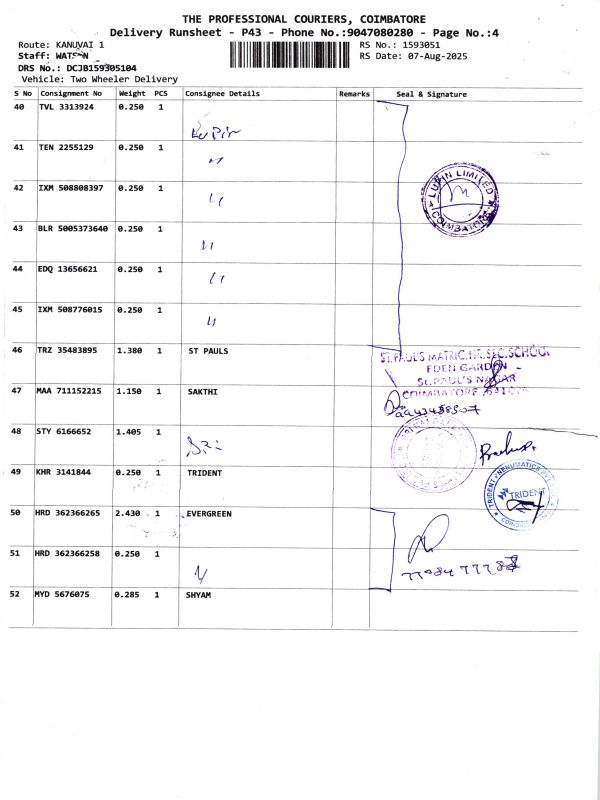 THE PROFESSIONAL COURIERS, COIMBATORE
Delivery Runsheet - P43 - Phone No.:9047080280 - Page No.:4
Route: KANUVAI 1
RS No.: 1593051
Staff: WATSON
RS Date: 07-Aug-2025
DRS No.: DCJB159305104
Vehicle: Two Wheeler Delivery
S No Consignment No Weight PCS Consignee Details Remarks Seal & Signature
40 TVL 3313924 0.250 1
Lupin
41 TEN 2255129 0.250 1
"
42 IXM 508808397 0.250 1
"
LUPIN LIMITED
COIMBATORE
43 BLR 5005373640 0.250 1
"
44 EDQ 13656621 0.250 1
"
45 IXM 508776015 0.250 1
"
46 TRZ 35483895 1.380 1 ST PAULS
ST.PAUL'S MATRIC.HR.SEC.SCHOOL
EDEN GARDEN
St.PAUL'S NAGAR
COIMBATORE
47 MAA 711152215 1.150 1 SAKTHI
48 STY 6166652 1.405 1
49 KHR 3141844 0.250 1 TRIDENT
TRIDENT
50 HRD 362366265 2.430 1 EVERGREEN
51 HRD 362366258 0.250 1
"
52 MYD 5676075 0.285 1 SHYAM